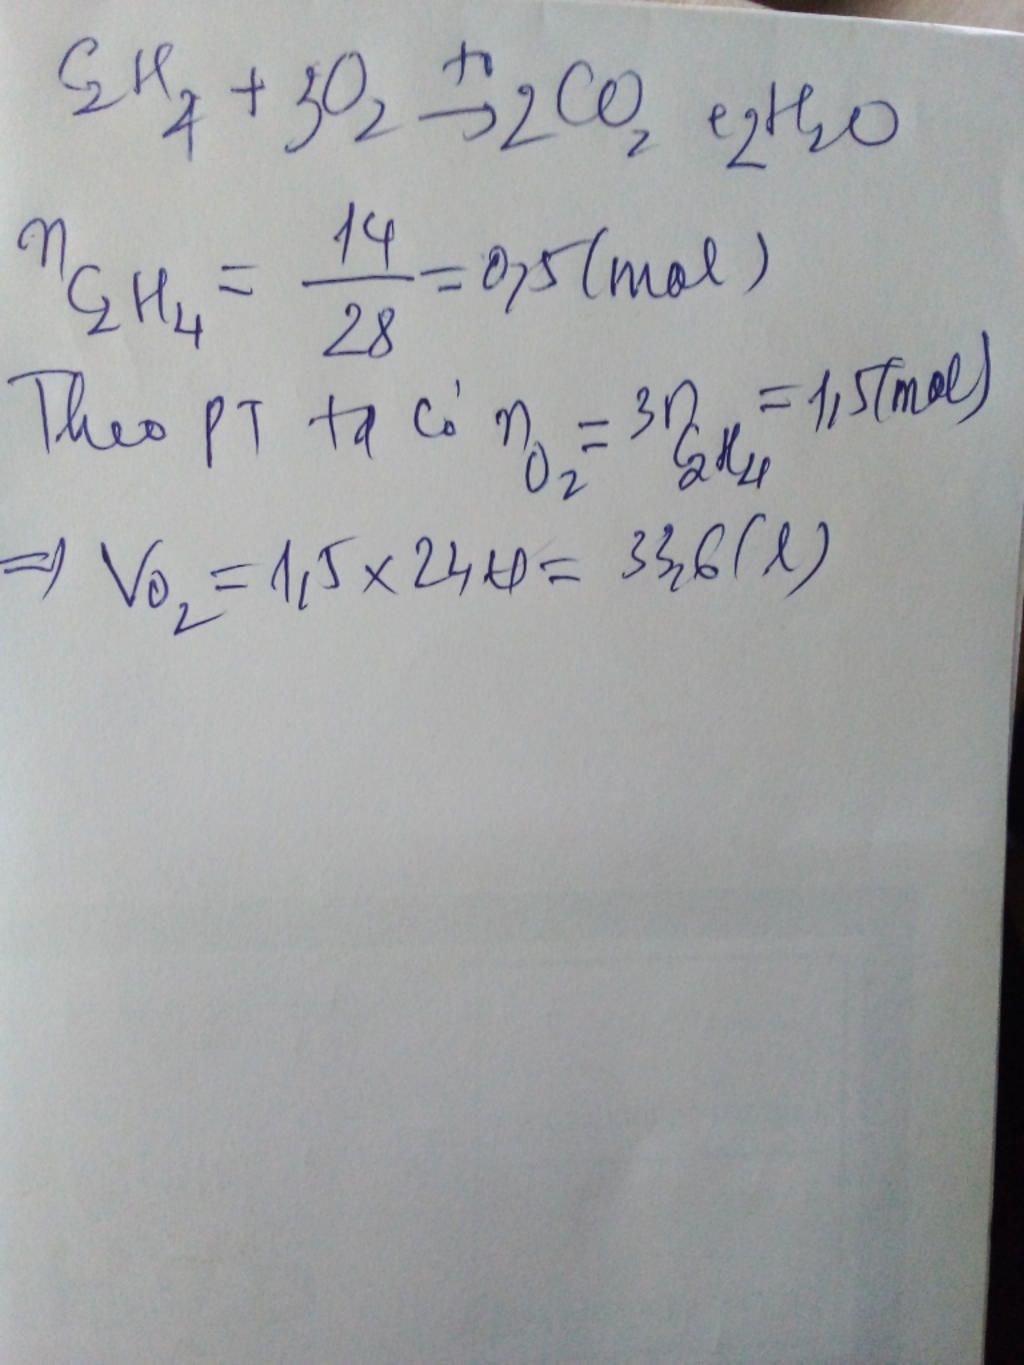 C₂H₄ + 3O₂ →(t⁰) 2CO₂ + 2H₂O
n C₂H₄ = 14/28 = 0,5 (mol)
Theo PT ta có n O₂ = 3n C₂H₄ = 1,5 (mol)
=> V O₂ = 1,5 x 22,4 = 33,6 (l)